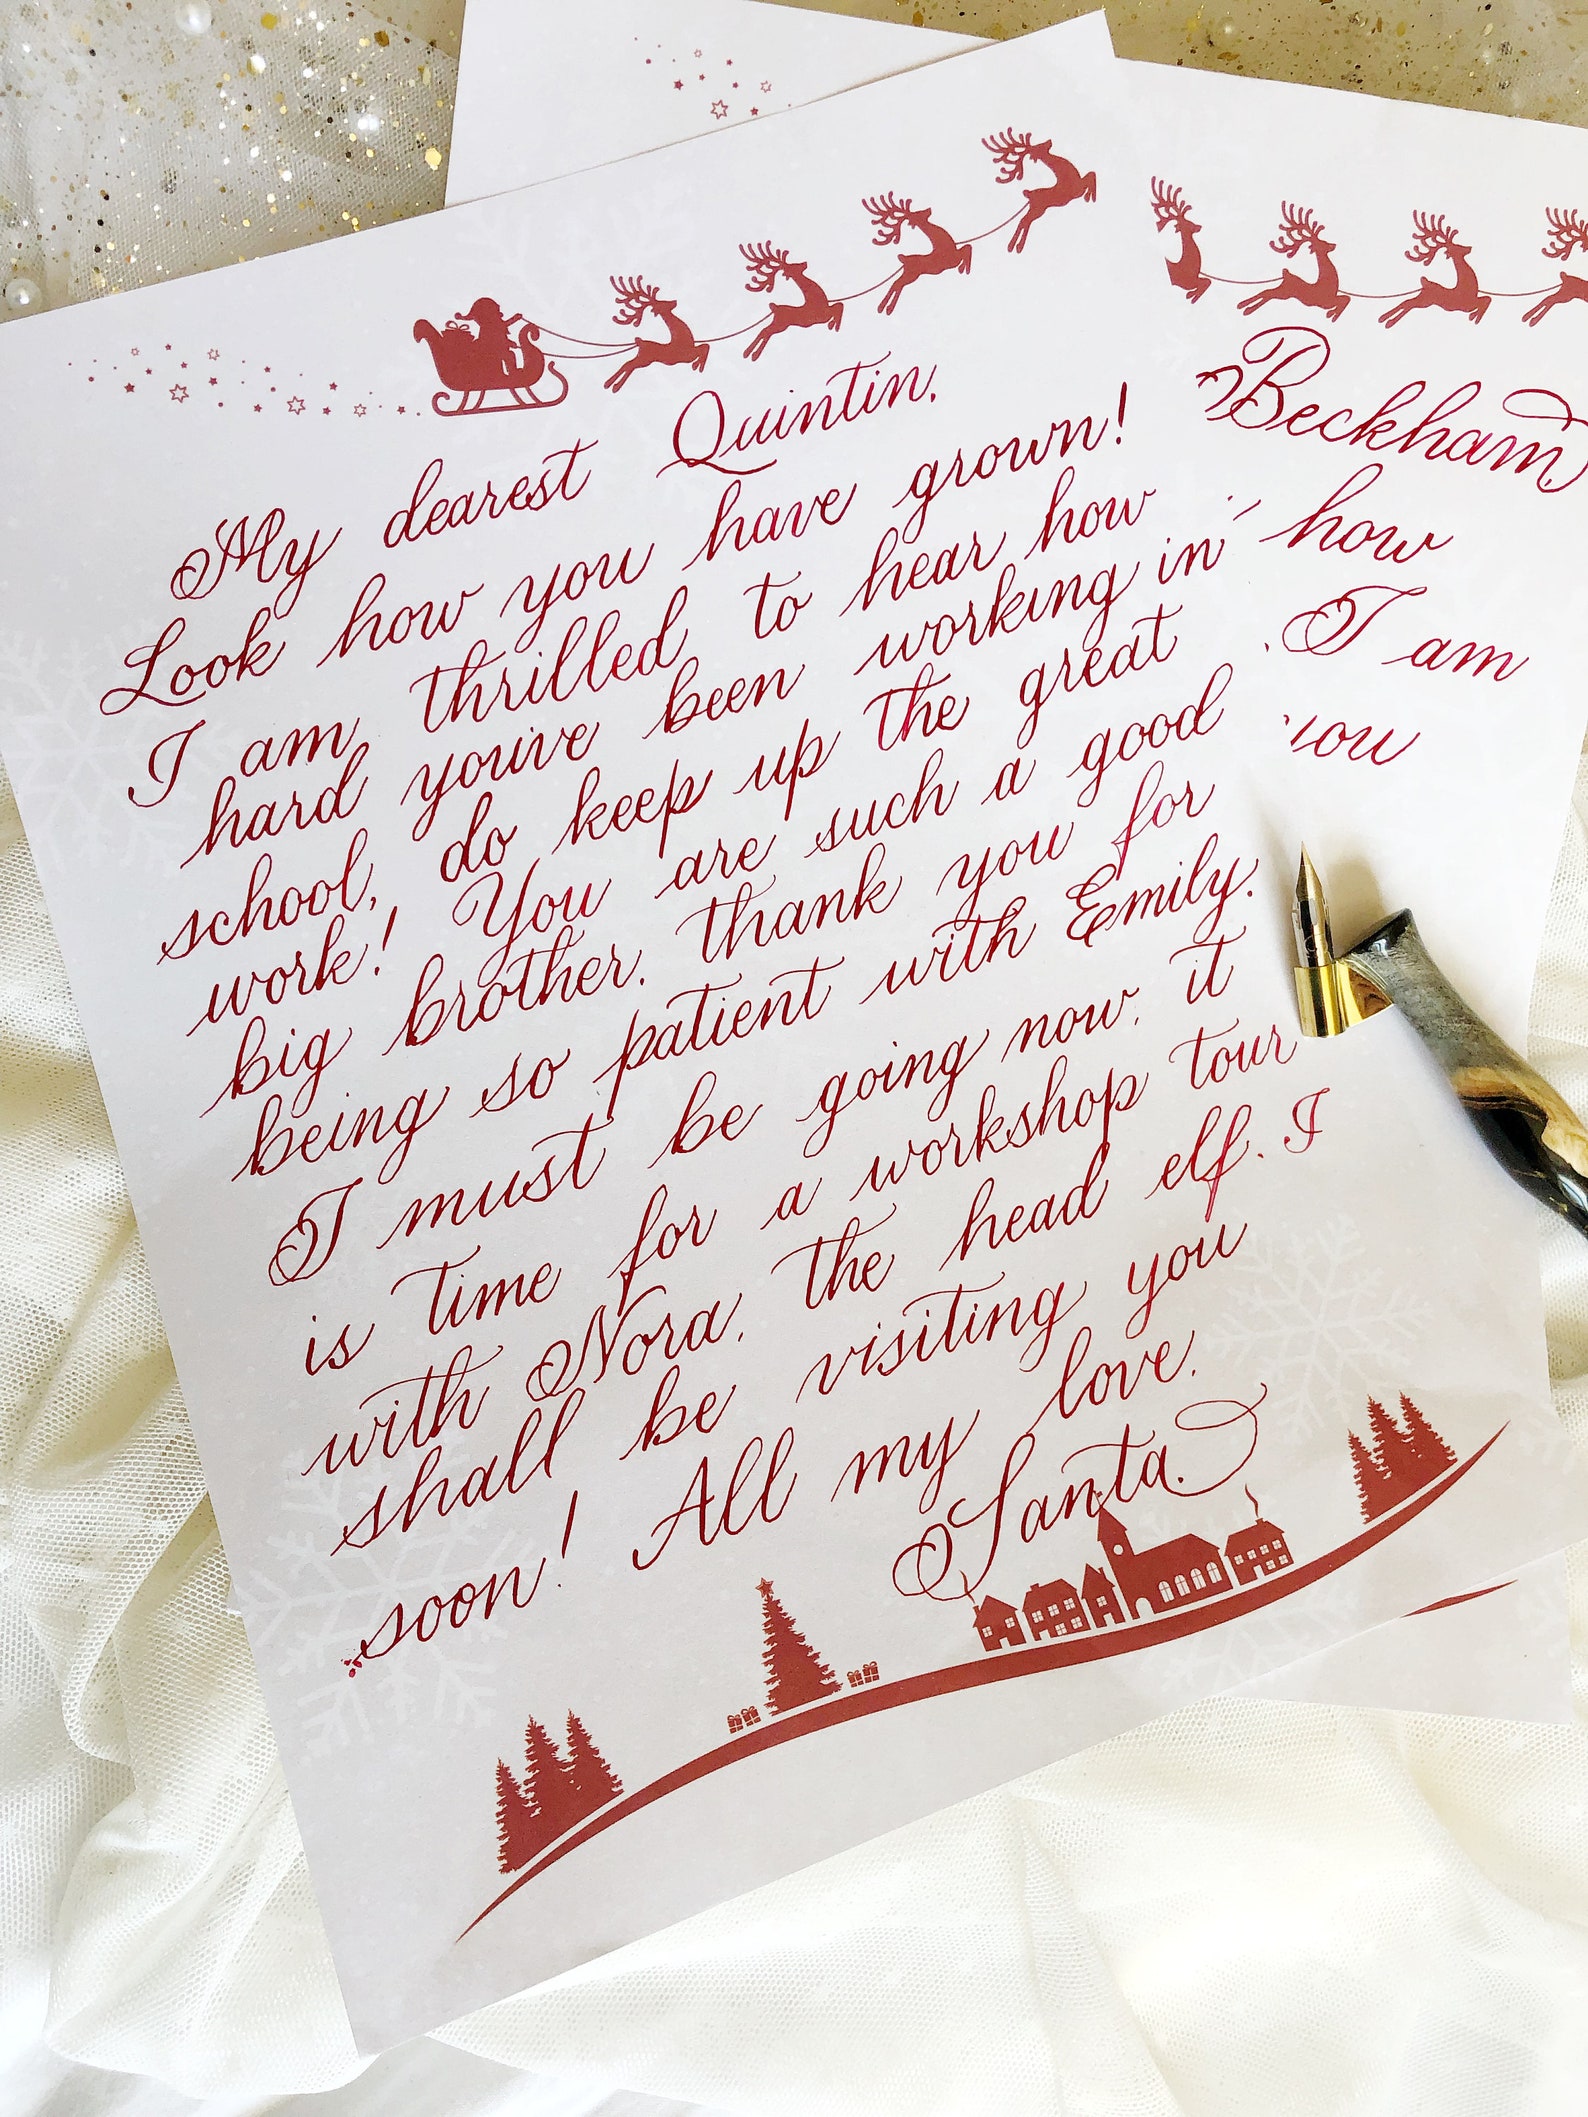 My dearest Quintin,
Look how you have grown!
I am thrilled to hear how
hard you've been working in
school, do keep up the great
work! You are such a good
big brother, thank you for
being so patient with Emily.
I must be going now, it
is time for a workshop tour
with Nora, the head elf. I
shall be visiting you
soon! All my love,
Santa.
Beckham,
how
I am
you